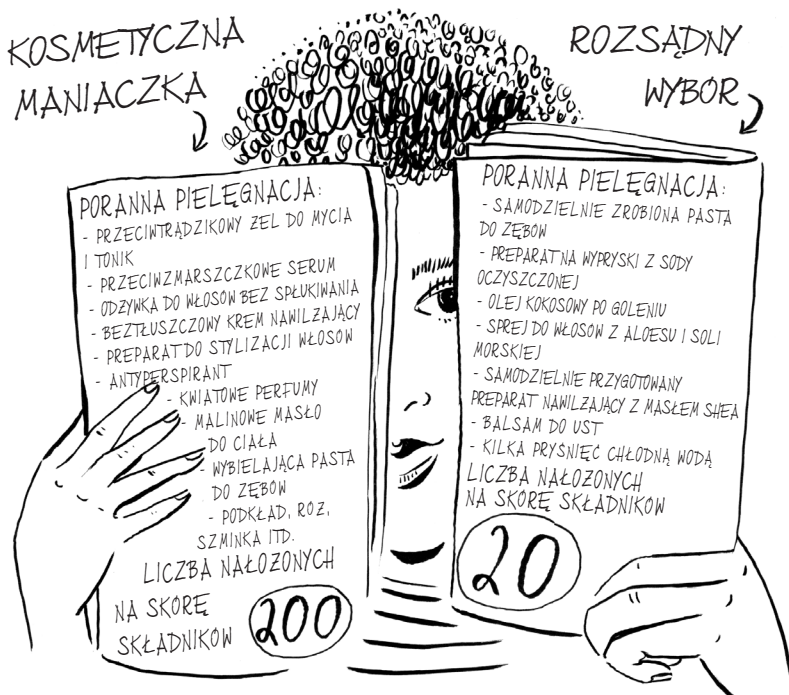 KOSMETYCZNA
MANIACZKA
PORANNA PIELĘGNACJA:
- PRZECIWTRĄDZIKOWY ŻEL DO MYCIA
I TONIK
- PRZECIWZMARSZCZKOWE SERUM
- ODŻYWKA DO WŁOSÓW BEZ SPŁUKIWANIA
- BEZTŁUSZCZOWY KREM NAWILŻAJĄCY
- PREPARAT DO STYLIZACJI WŁOSÓW
- ANTYPERSPIRANT
- KWIATOWE PERFUMY
- MALINOWE MASŁO
DO CIAŁA
- WYBIELAJĄCA PASTA
DO ZĘBÓW
- PODKŁAD, RÓŻ,
SZMINKA ITD.
LICZBA NAŁOŻONYCH
NA SKÓRĘ
SKŁADNIKÓW 200
ROZSĄDNY
WYBÓR
PORANNA PIELĘGNACJA:
- SAMODZIELNIE ZROBIONA PASTA
DO ZĘBÓW
- PREPARAT NA WYPRYSKI Z SODY
OCZYSZCZONEJ
- OLEJ KOKOSOWY PO GOLENIU
- SPREJ DO WŁOSÓW Z ALOESU I SOLI
MORSKIEJ
- SAMODZIELNIE PRZYGOTOWANY
PREPARAT NAWILŻAJĄCY Z MASŁEM SHEA
- BALSAM DO UST
- KILKA PRYŚNIĘĆ CHŁODNĄ WODĄ
LICZBA NAŁOŻONYCH
NA SKÓRĘ SKŁADNIKÓW
20